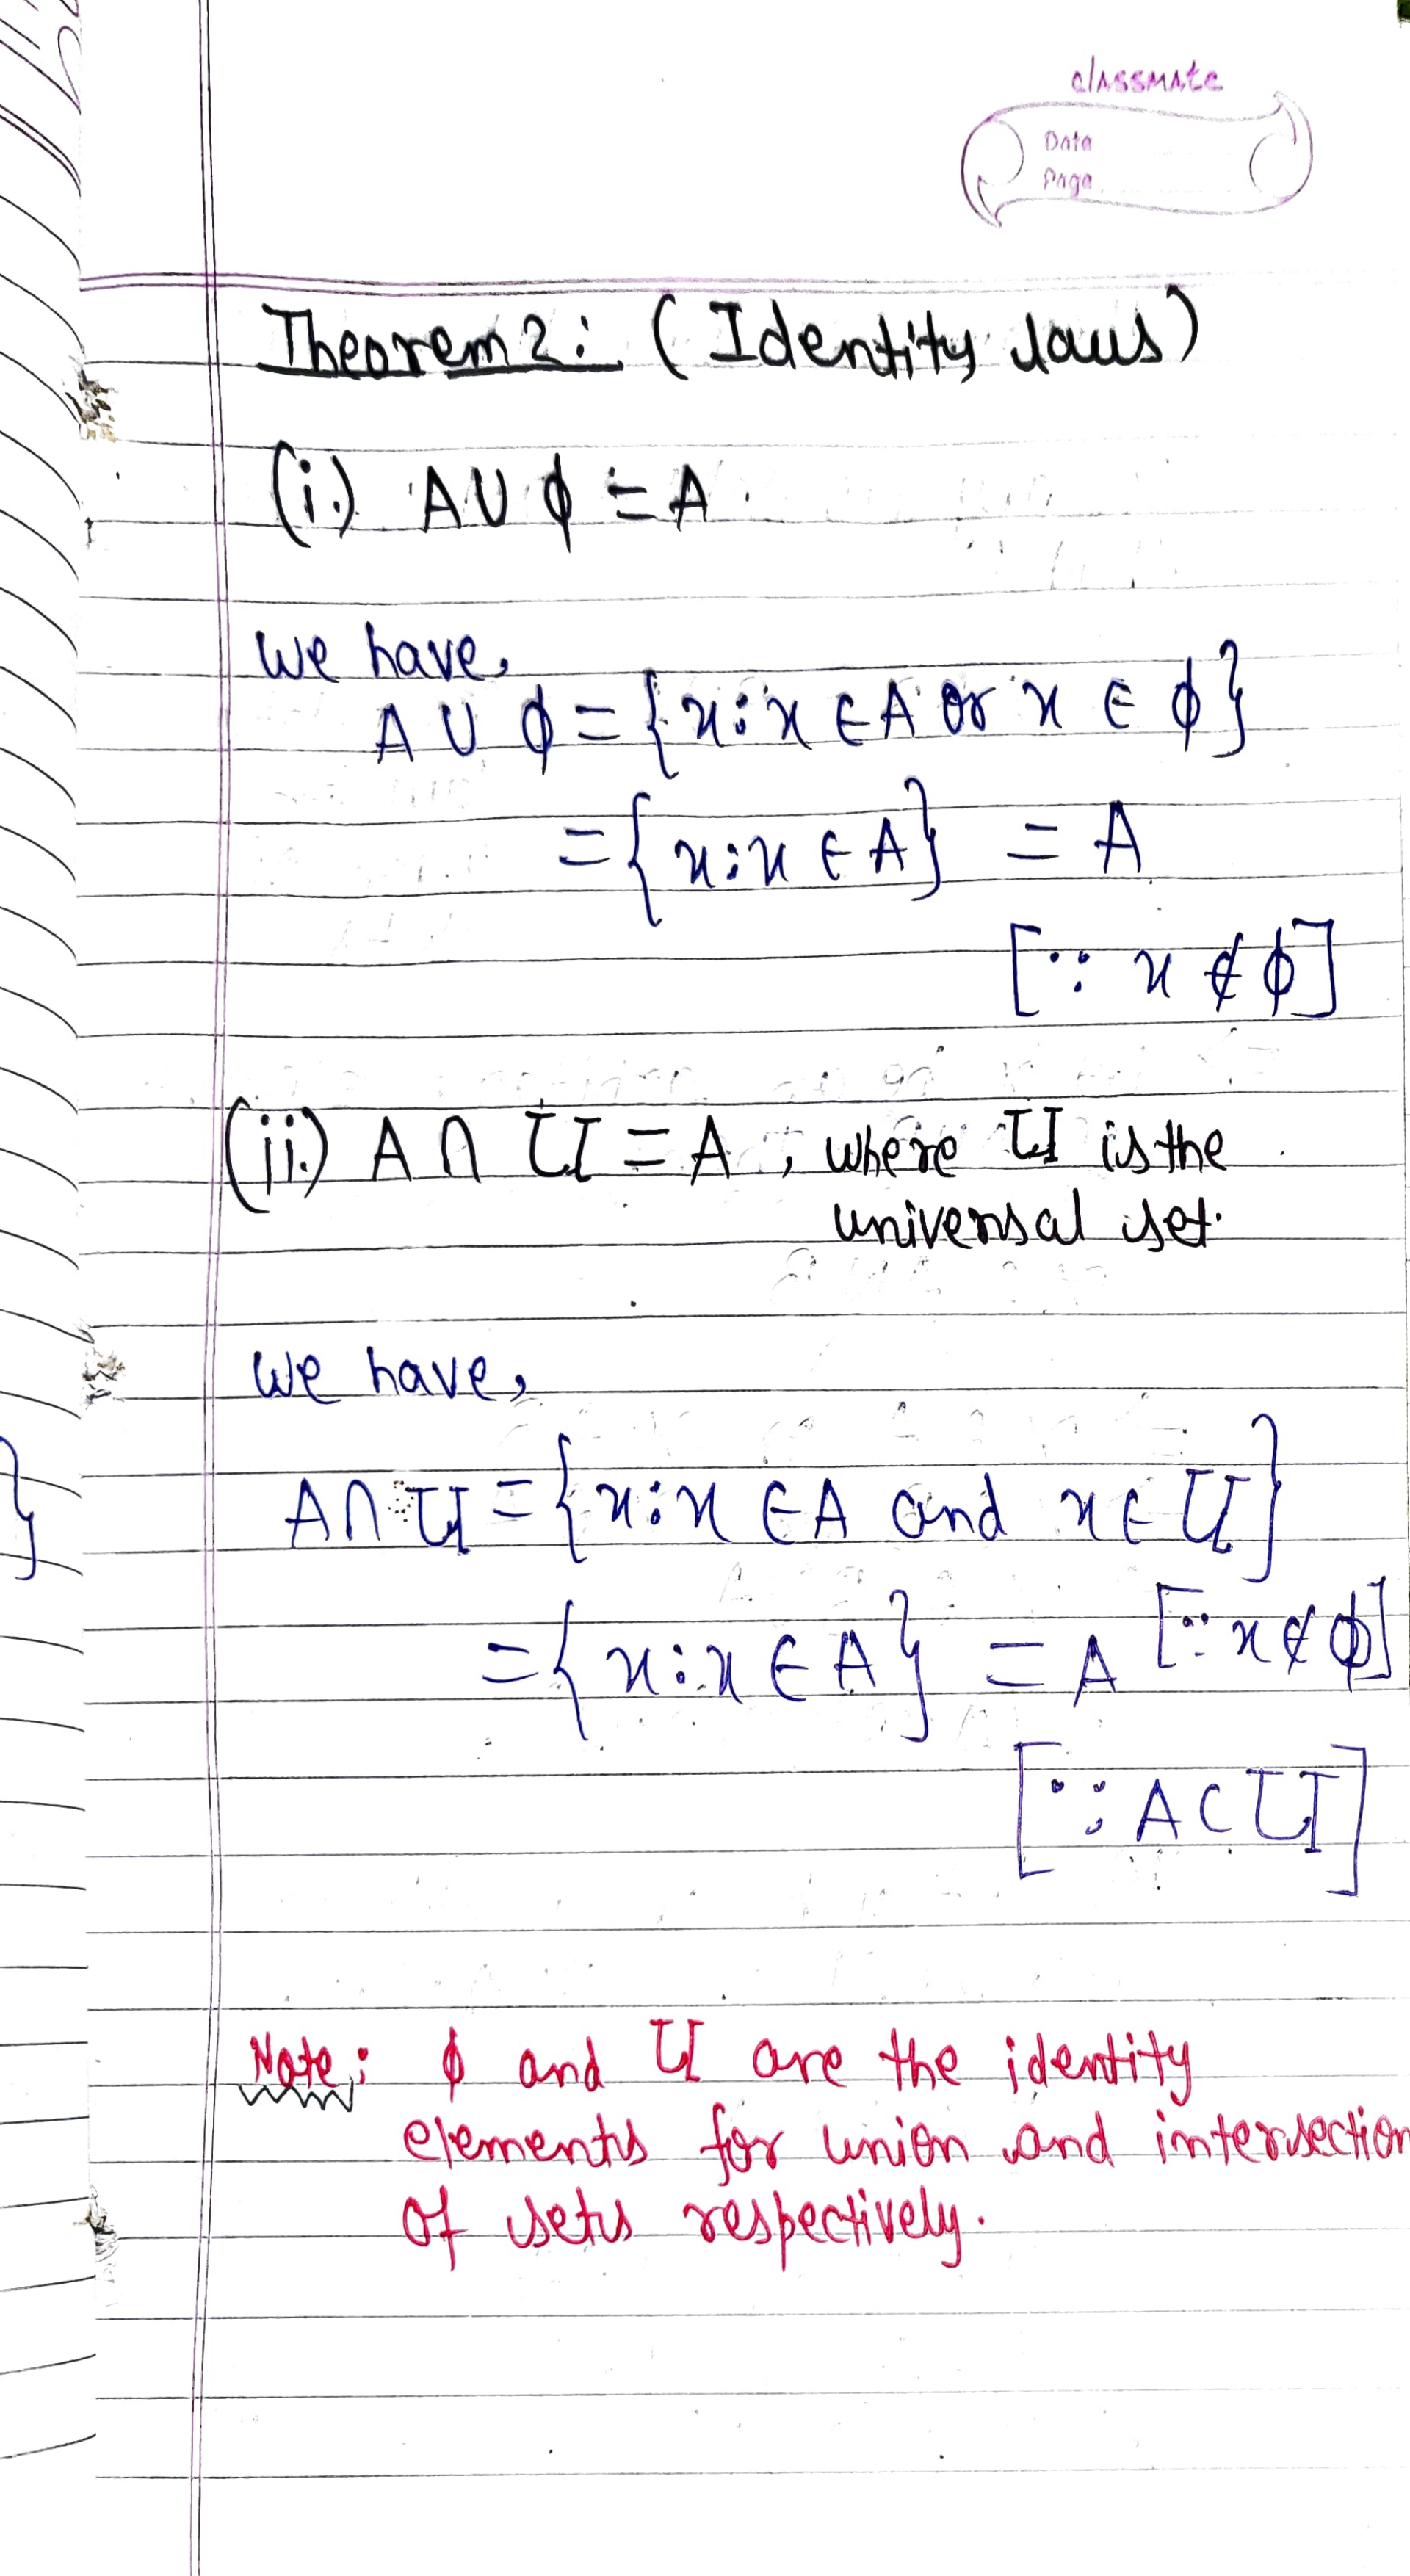 classmate
Date
Page
Theorem 2: (Identity laws)
(i.) A ∪ ϕ = A
we have,
A ∪ ϕ = {x : x ∈ A or x ∈ ϕ}
= {x : x ∈ A} = A
[∵ x ∉ ϕ]
(ii.) A ∩ U = A , where U is the
universal set.
we have,
A ∩ U = {x : x ∈ A and x ∈ U}
= {x : x ∈ A} = A [∵ x ∉ ϕ]
[∵ A ⊂ U]
Note: ϕ and U are the identity
elements for union and intersection
of sets respectively.